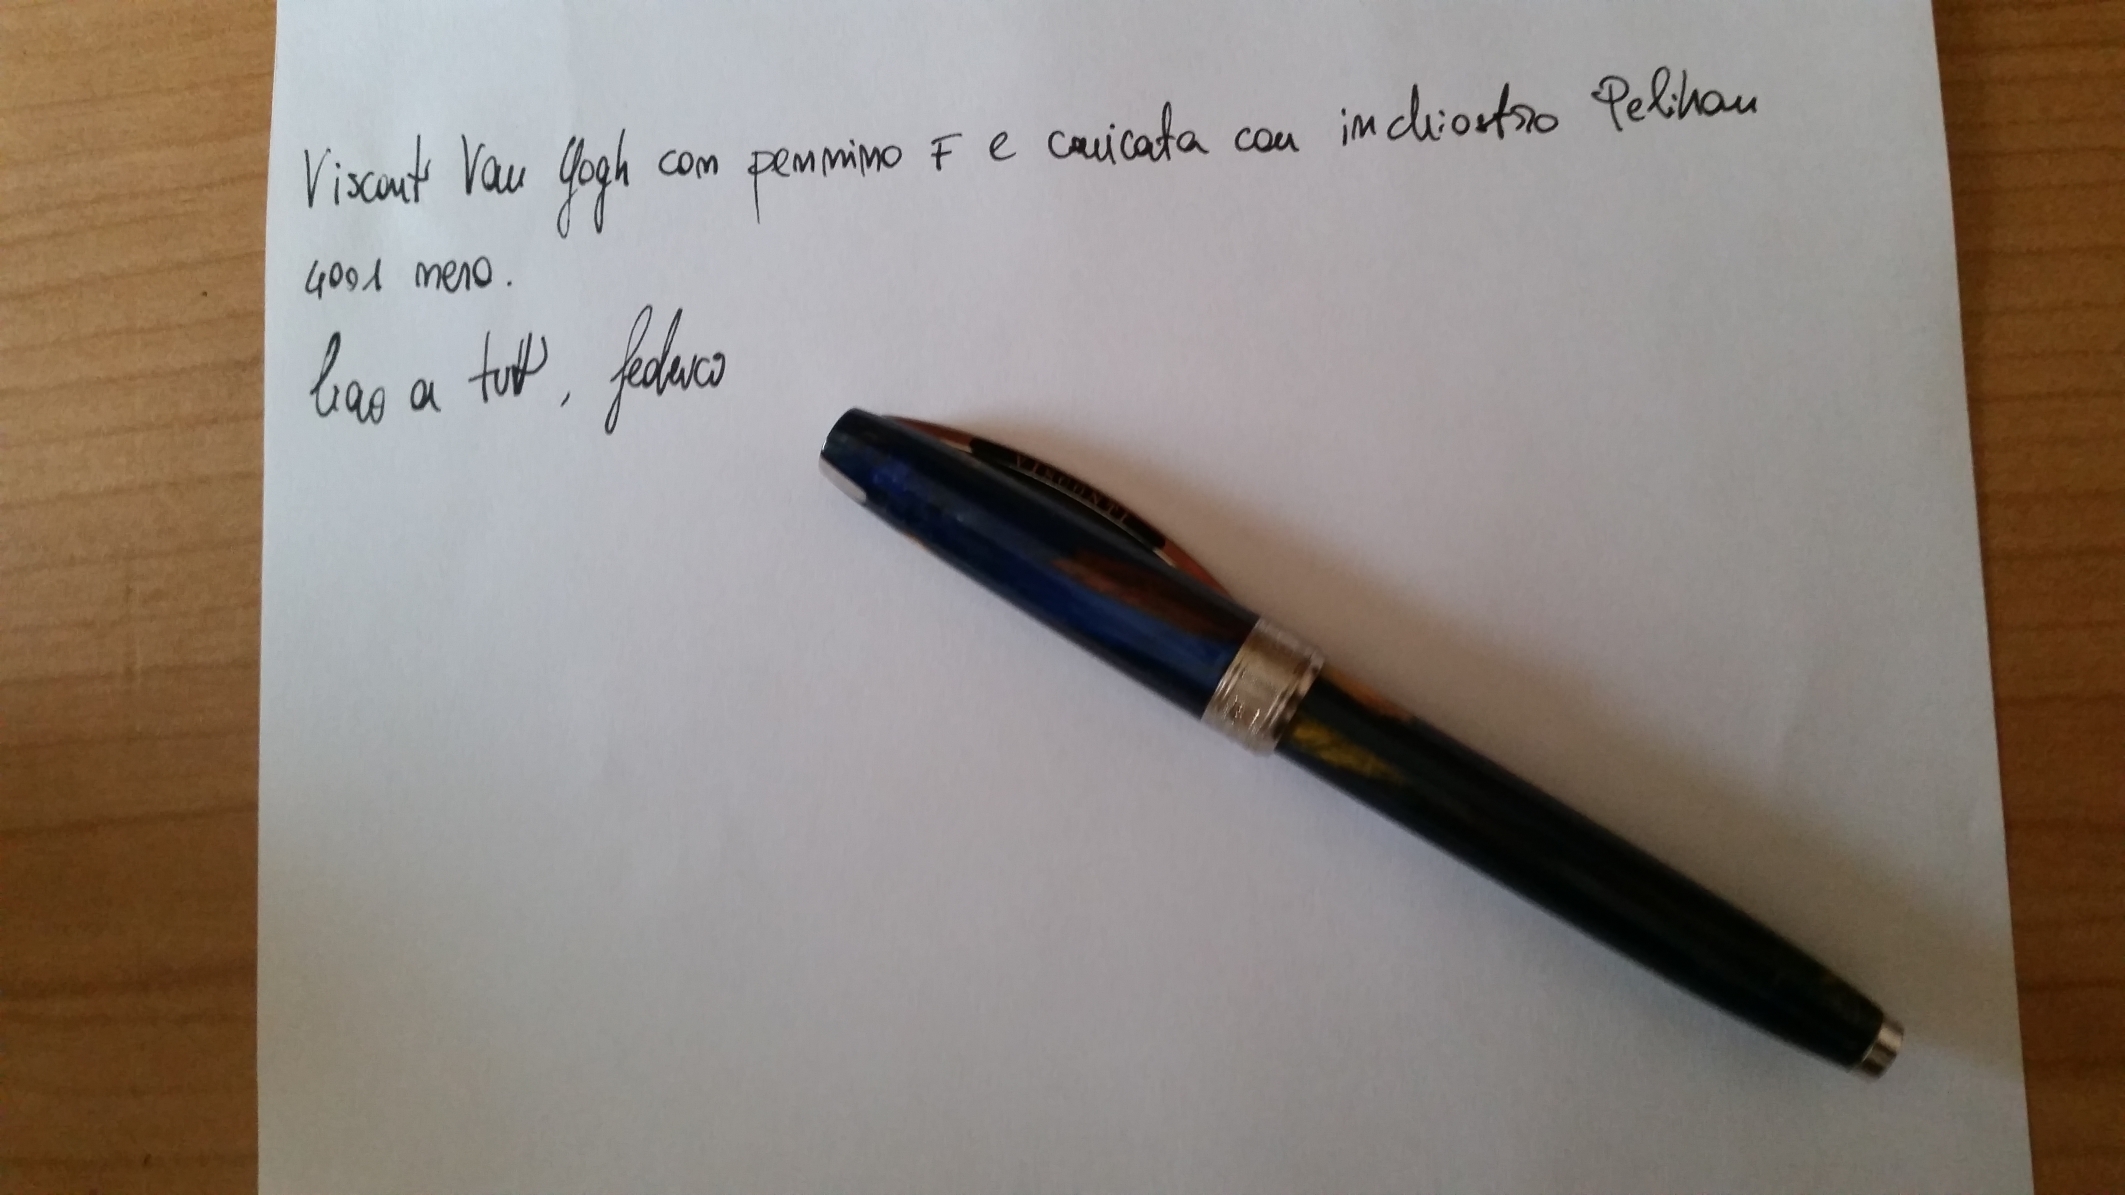 Visconti Van Gogh con pennino F e caricata con inchiostro Pelikan
4001 nero.
Ciao a tutti, federico
VISCONTI